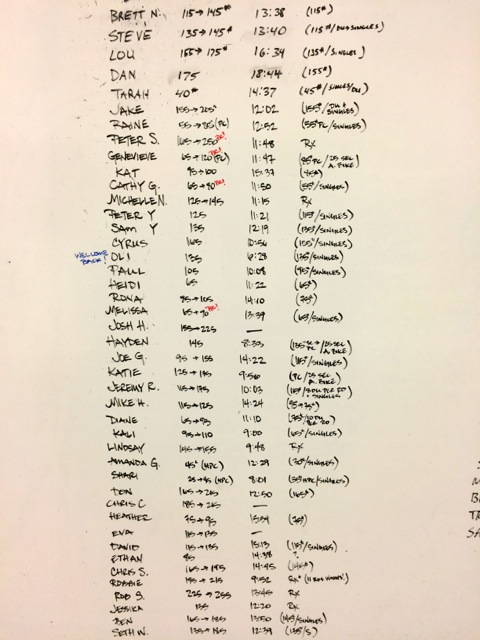 BRETT N. 115→145# 13:38 (115#)
STEVE 135→145# 13:40 (115#/DU+SINGLES)
LOU 155→175# 16:34 (135#/SINGLES)
DAN 175 18:44 (155#)
TARAH 40# 14:37 (45#/SINGLES/DU)
JAKE 155→205# 12:02 (155#/DU & SINGLES)
RAINE 55→85#(PC) 12:52 (55#PC/SINGLES)
PETER S. 165→250 PR! 11:48 RX
GENEVIEVE 65→120 PR! (PC) 11:47 (85#PC/25 SEC A. BIKE)
KAT 95→100 15:37
CATHY G. 65→80 PR! 11:50 (55#/SINGLES)
MICHELLE N. 125→145 11:15 RX
PETER Y 125 11:21 (115#/SINGLES)
SAM Y 135 12:19 (135#/SINGLES)
CYRUS 165 10:56 (155#/SINGLES)
WELCOME BACK! OLI 135 6:28 (135#/SINGLES)
PAUL 105 10:08 (95#/SINGLES)
HEIDI 65 11:22 (65#)
RONA 85→105 14:10 (75#)
MELISSA 65→90 PR! 13:39 (65/SINGLES)
JOSH H. 155→225 —
HAYDEN 145 8:35 (135 PC/25 SEC A. BIKE)
JOE G. 95→155 14:22 (115#/SINGLES)
KATIE 125→145 9:56 (PC/25 SEC A. BIKE)
JEREMY R. 115→175 10:03 (115#/ SINGLES)
MIKE H. 115→125 14:24
DIANE 65→95 11:10
KALI 95→110 9:00 (65#/SINGLES)
LINDSAY 145→155 9:48 RX
AMANDA G. 45# (HPC) 12:29 (30#/SINGLES)
SHARI 25→45 (HPC) 8:01 (35#HPC/SINGLES)
165→215 12:50 (165#)
CHRIS C 185→215 —
HEATHER 75→95 (75#)
EVA 115→135 —
DAVID 115→155 15:13 (115#/SINGLES)
ETHAN 85 14:38
CHRIS S. 165→195 14:45 (145#)
ROBBIE 155→215 9:52 RX+
ROB S. 225→255 13:45 RX
JESSIKA 155 12:20 RX
BEN 165→185 13:50 (145/SINGLES)
SETH N. 135→145 12:39 (135/S)